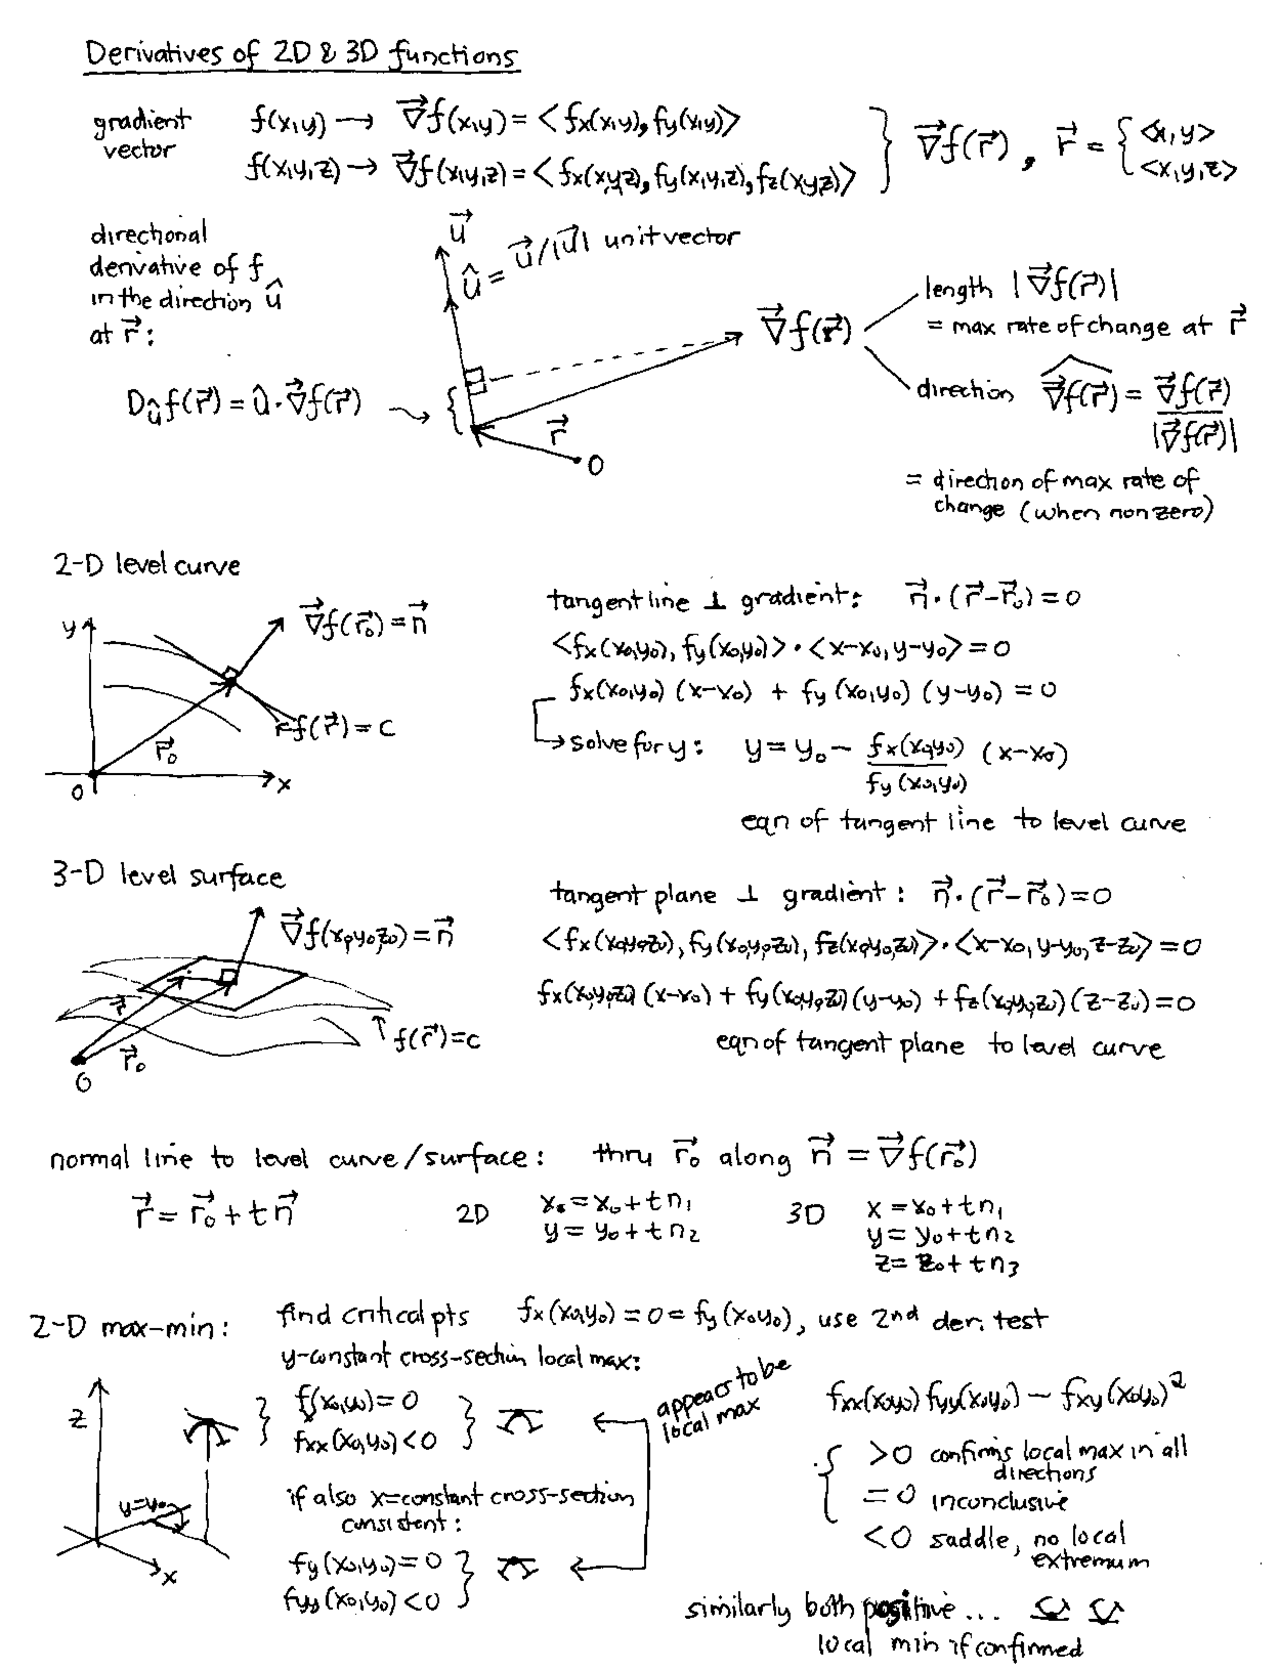 Derivatives of 2D & 3D functions
gradient vector
f(x,y) → ∇⃗f(x,y) = <fx(x,y), fy(x,y)>
f(x,y,z) → ∇⃗f(x,y,z) = <fx(x,y,z), fy(x,y,z), fz(x,y,z)>
} ∇⃗f(r⃗), r⃗ = { <x,y>
<x,y,z>
directional
derivative of f
in the direction û
at r⃗:
u⃗
û = u⃗/|u⃗| unit vector
∇⃗f(r⃗)
length |∇⃗f(r⃗)|
= max rate of change at r⃗
direction ∇⃗f(r⃗)^ = ∇⃗f(r⃗) / |∇⃗f(r⃗)|
= direction of max rate of
change (when nonzero)
Dûf(r⃗) = û·∇⃗f(r⃗) → {
r⃗
O
2-D level curve
y
∇⃗f(r⃗₀) = n⃗
f(r⃗) = c
r⃗₀
O
x
tangent line ⊥ gradient: n⃗·(r⃗-r⃗₀) = 0
<fx(x₀,y₀), fy(x₀,y₀)>·<x-x₀, y-y₀> = 0
fx(x₀,y₀)(x-x₀) + fy(x₀,y₀)(y-y₀) = 0
→ solve for y: y = y₀ - fx(x₀,y₀)/fy(x₀,y₀) (x-x₀)
eqn of tangent line to level curve
3-D level surface
∇⃗f(x₀,y₀,z₀) = n⃗
r⃗
r⃗₀
O
f(r⃗) = c
tangent plane ⊥ gradient: n⃗·(r⃗-r⃗₀) = 0
<fx(x₀,y₀,z₀), fy(x₀,y₀,z₀), fz(x₀,y₀,z₀)>·<x-x₀, y-y₀, z-z₀> = 0
fx(x₀,y₀,z₀)(x-x₀) + fy(x₀,y₀,z₀)(y-y₀) + fz(x₀,y₀,z₀)(z-z₀) = 0
eqn of tangent plane to level curve
normal line to level curve/surface: thru r⃗₀ along n⃗ = ∇⃗f(r⃗₀)
r⃗ = r⃗₀ + t n⃗
2D
x = x₀ + t n₁
y = y₀ + t n₂
3D
x = x₀ + t n₁
y = y₀ + t n₂
z = z₀ + t n₃
2-D max-min: find critical pts fx(x₀,y₀) = 0 = fy(x₀,y₀), use 2nd der. test
y-constant cross-section local max:
z
y=y₀
x
fx(x₀,y₀) = 0
fxx(x₀,y₀) < 0
if also x=constant cross-section
consistent:
fy(x₀,y₀) = 0
fyy(x₀,y₀) < 0
appears to be
local max
fxx(x₀,y₀) fyy(x₀,y₀) - fxy(x₀,y₀)²
>0 confirms local max in all
directions
=0 inconclusive
<0 saddle, no local
extremum
similarly both positive...
local min if confirmed